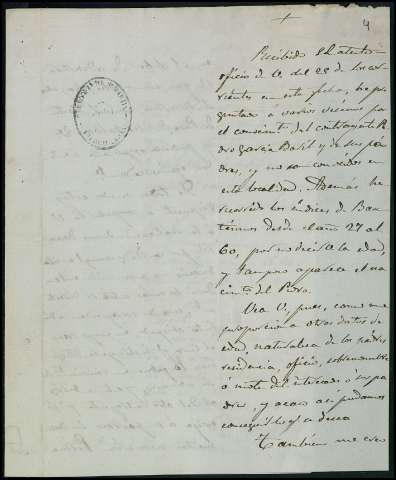 4
Recibido el atento
oficio de V. del 25 de los cor
rientes en esta fecha, he pre
guntado á varios vecinos por
el conocimto. del contrayente Pe
dro García Badil y de sus pa
dres, y no son conocidos en
esta localidad. Además he
recorrido los índices de Bau
tismos desde el año 27 al
60, por no decir la edad,
y tampoco aparece el na
cimto. del Pedro.
Vea V., pues, como me
proporciona otros datos de
edad, naturaleza de los padres
residencia, oficio, sobrenombre
ó mote del interesado ó sus pa
dres, y acaso así podamos
conseguir lo q. se desea
Tambien me creo